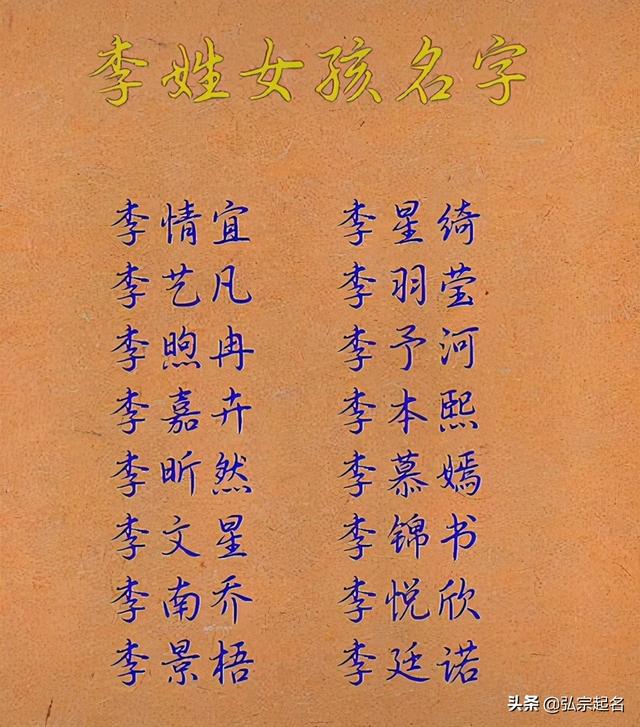 李姓女孩名字
李情宜 李星绮
李艺凡 李羽莹
李煦冉 李予河
李嘉卉 李本熙
李昕然 李慕嫣
李文星 李锦书
李南乔 李悦欣
李景梧 李廷诺
头条 @弘宗起名